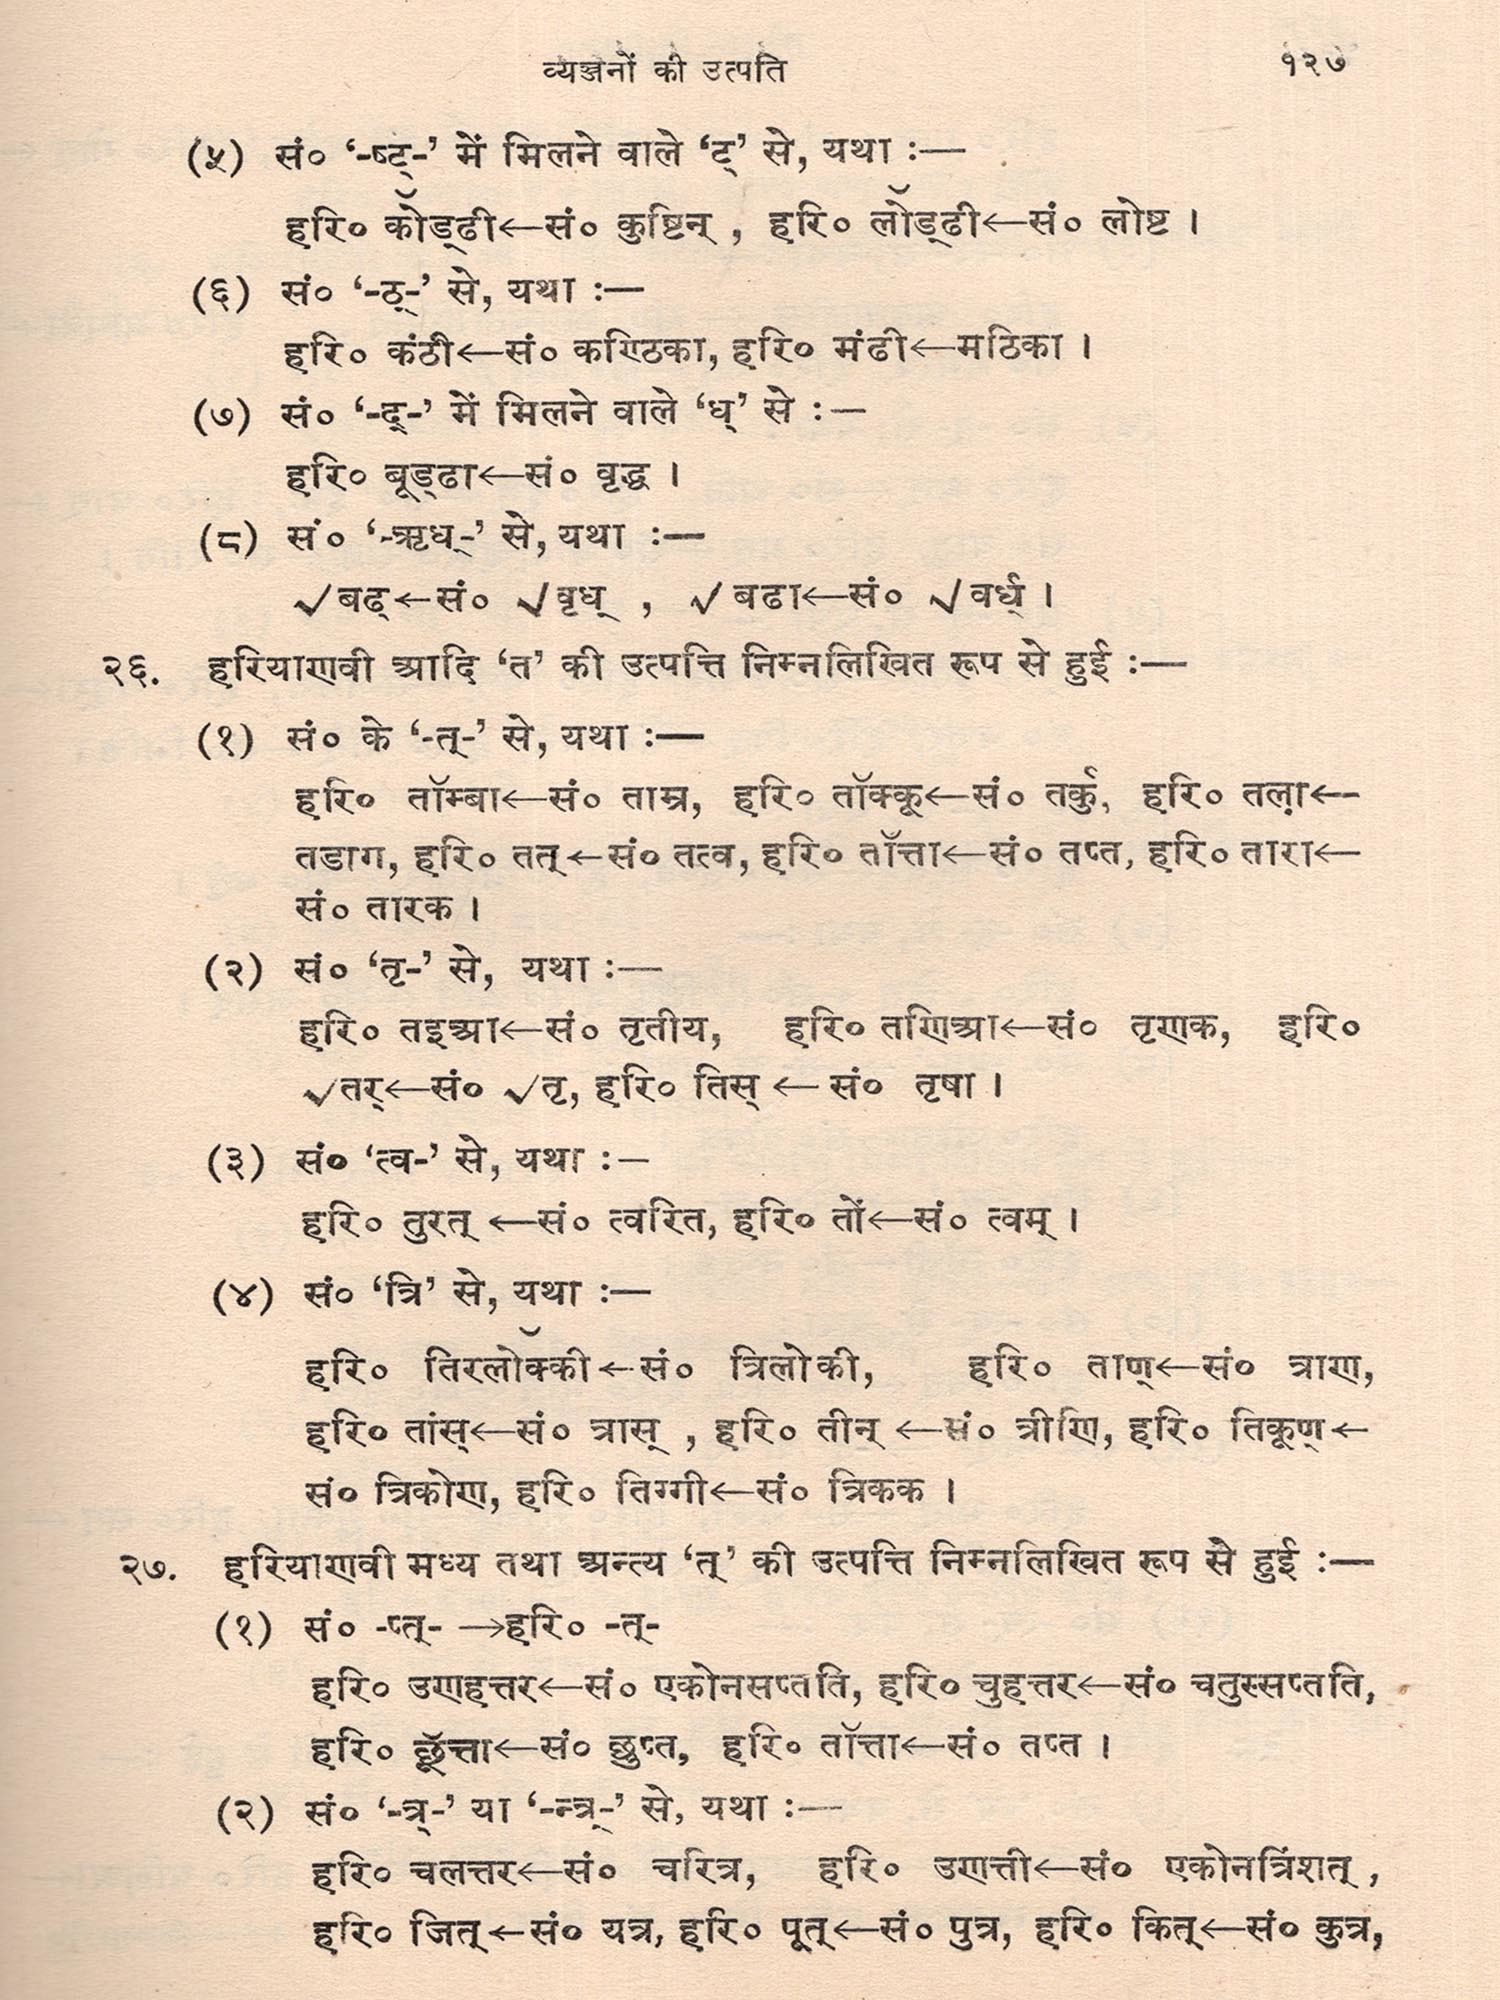 व्यञ्जनों की उत्पति १२७
(५) सं० ‘-ष्ट्-’ में मिलने वाले ‘ट्’ से, यथा :—
हरि० कॊड्ढी←सं० कुष्टिन् , हरि० लॊड्ढी←सं० लोष्ट ।
(६) सं० ‘-ठ्-’ से, यथा :—
हरि० कंठी←सं० कण्ठिका, हरि० मंढी←मठिका ।
(७) सं० ‘-द्-’ में मिलने वाले ‘ध्’ से :—
हरि० बूड्ढा←सं० वृद्ध ।
(८) सं० ‘-ऋध्-’ से, यथा :—
√बढ्←सं० √वृध् , √बढा←सं० √वर्ध् ।
२६. हरियाणवी आदि ‘त’ की उत्पत्ति निम्नलिखित रूप से हुई :—
(१) सं० के ‘-त्-’ से, यथा :—
हरि० तॉम्बा←सं० ताम्र, हरि० तॉक्कू←सं० तर्कु, हरि० तला़←
तडाग, हरि० तत्←सं० तत्व, हरि० तॉत्ता←सं० तप्त, हरि० तारा←
सं० तारक ।
(२) सं० ‘तृ-’ से, यथा :—
हरि० तइआ←सं० तृतीय, हरि० तणिआ←सं० तृणक, हरि०
√तर्←सं० √तृ, हरि० तिस् ← सं० तृषा ।
(३) सं० ‘त्व-’ से, यथा :—
हरि० तुरत् ←सं० त्वरित, हरि० तों←सं० त्वम् ।
(४) सं० ‘त्रि’ से, यथा :—
हरि० तिरलॊक्की←सं० त्रिलोकी, हरि० ताण्←सं० त्राण,
हरि० तांस्←सं० त्रास् , हरि० तीन् ←सं० त्रीणि, हरि० तिकूण्←
सं० त्रिकोण, हरि० तिग्गी←सं० त्रिकक ।
२७. हरियाणवी मध्य तथा अन्त्य ‘त्’ की उत्पत्ति निम्नलिखित रूप से हुई :—
(१) सं० -प्त्- →हरि० -त्-
हरि० उणहत्तर←सं० एकोनसप्तति, हरि० चुहत्तर←सं० चतुस्सप्तति,
हरि० छूॅत्ता←सं० छुप्त, हरि० तॉत्ता←सं० तप्त ।
(२) सं० ‘-त्र्-’ या ‘-न्त्र्-’ से, यथा :—
हरि० चलत्तर←सं० चरित्र, हरि० उणत्ती←सं० एकोनत्रिंशत् ,
हरि० जित्←सं० यत्र, हरि० पूत्←सं० पुत्र, हरि० कित्←सं० कुत्र,